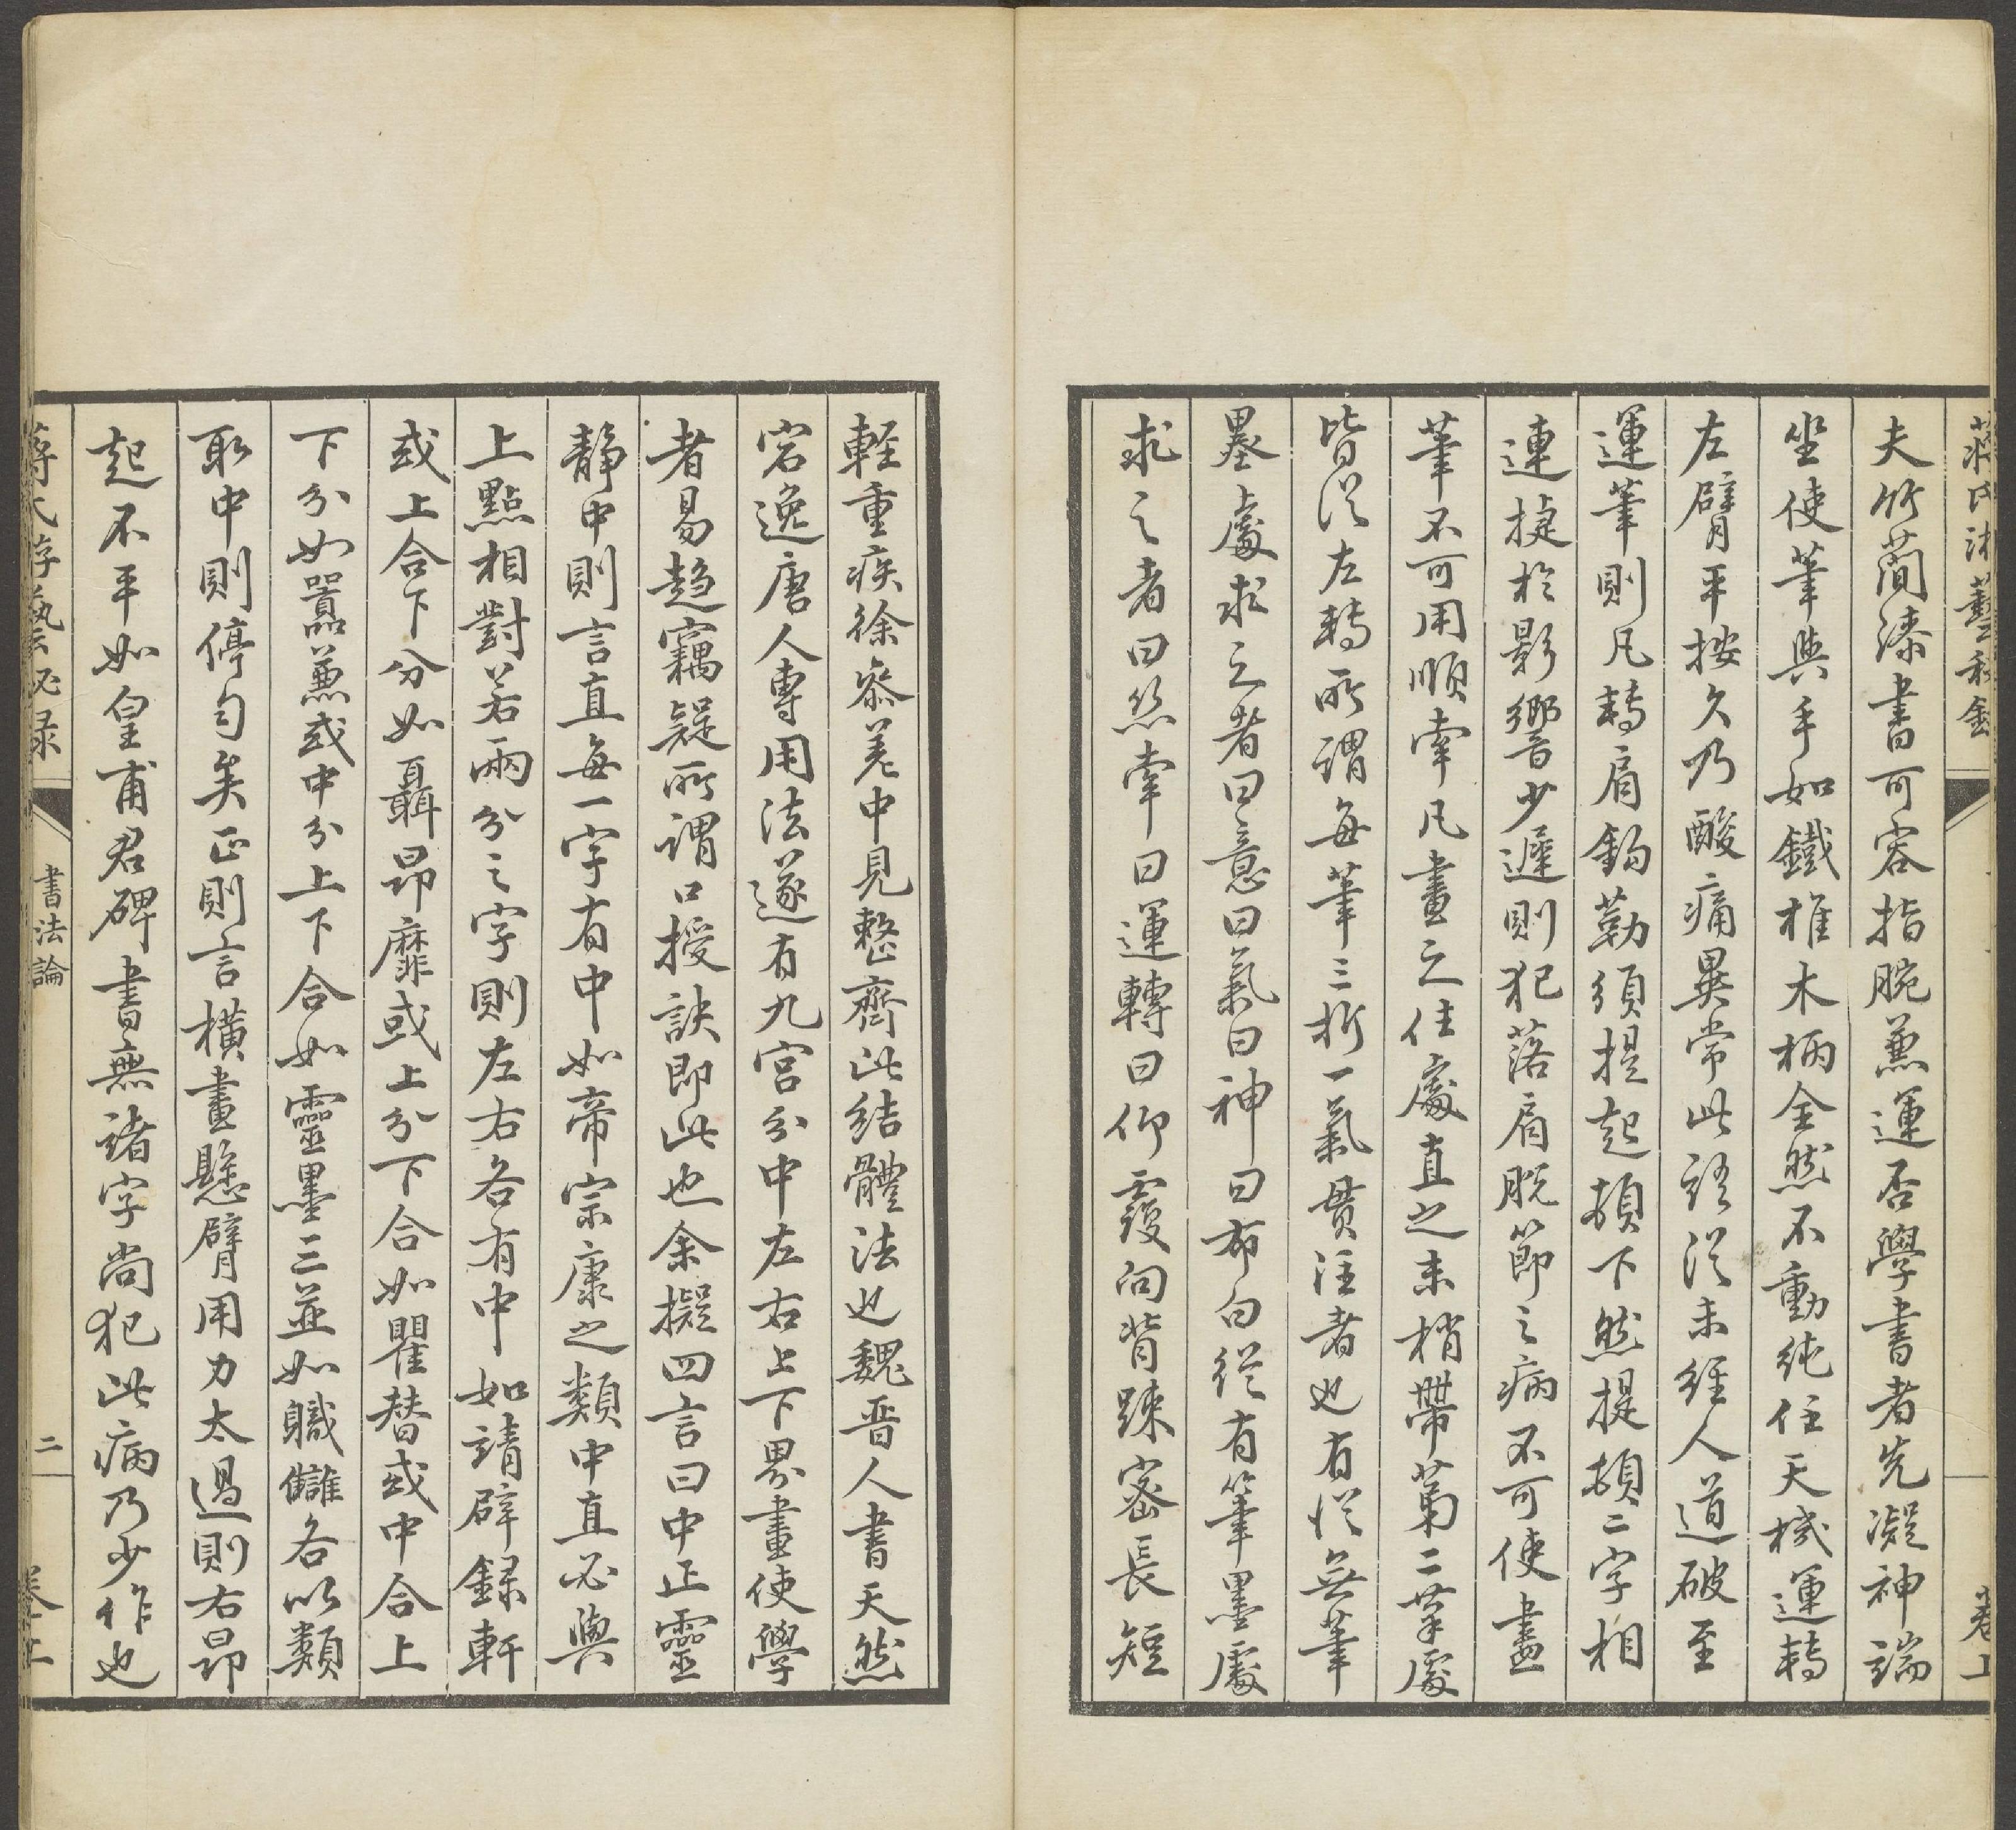 蔣氏游藝秘錄
卷上
夫竹蕑漆書可容指腕蕙運否學書者先凝神端
坐使筆與手如鐵椎木柄全然不動純任天機運轉
左臂平按久乃酸痛異常此語從未經人道破至
運筆則凡轉肩鈎勒須提起頓下然提頓二字相
連捷於影響少遲則犯落肩脫節之病不可使畫
筆不可用順牽凡畫之住處直之末梢帶苐二筆處
皆從左轉所謂每筆三折一氣貫注者也有從無筆
墨處求之者曰意曰氣曰神曰布白從有筆墨處
求之者曰絲牽曰運轉曰仰覆向背疎密長短
輕重疾徐參差中見整齊此結體法也魏晋人書天然
宕逸唐人專用法遂有九宮分中左右上下界畫使學
者易趨竊疑所謂口授訣即此也余擬四言曰中正靈
靜中則言直每一字有中如帝宗康之類中直必與
上點相對若兩分之字則左右各有中如請辟録軒
或上合下分如聶昂靡或上分下合如瞿替或中合上
下分如嚣蕙或中分上下合如靈墨三並如職讎各以類
取中則停勻矣正則言橫畫懸臂用力太過則右昂
起不平如皇甫君碑書無諸字尚犯此病乃少作也
蔣氏游藝秘录
書法論
二
卷上